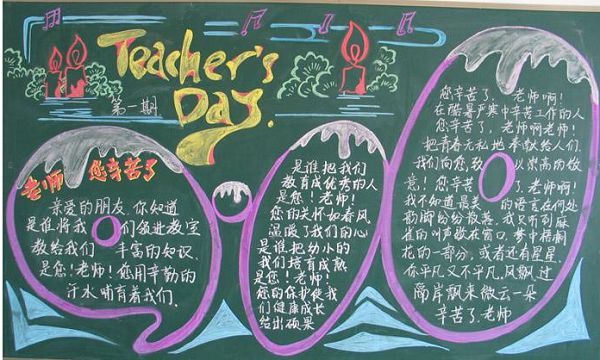 Teacher's
Day.
第一期
老师 您辛苦了
亲爱的朋友,你知道
是谁将我们领进教室
教给我们丰富的知识.
是您!老师!您用辛勤的
汗水哺育着我们.
是谁把我们
教育成优秀的人
是您!老师!
您的关怀如春风
温暖了我们的心
是谁把幼小的
我们培育成熟
是您!老师!
您的保护使我
们健康成长
结出硕果
您辛苦了、老师啊!
在酷暑严寒中辛苦工作的人
您辛苦了、老师啊老师!
把青春无私地奉献给人们.
我们向您,致以崇高的敬
意!您辛苦了、老师啊!
我不知道最美的语言在何处
纷纷散落.我只听到麻
雀的叫声散在窗口,梦中梧桐
花的一部分,或者还有星星.
你平凡又不平凡,风飘过
隔岸飘来微云一朵
辛苦了.老师